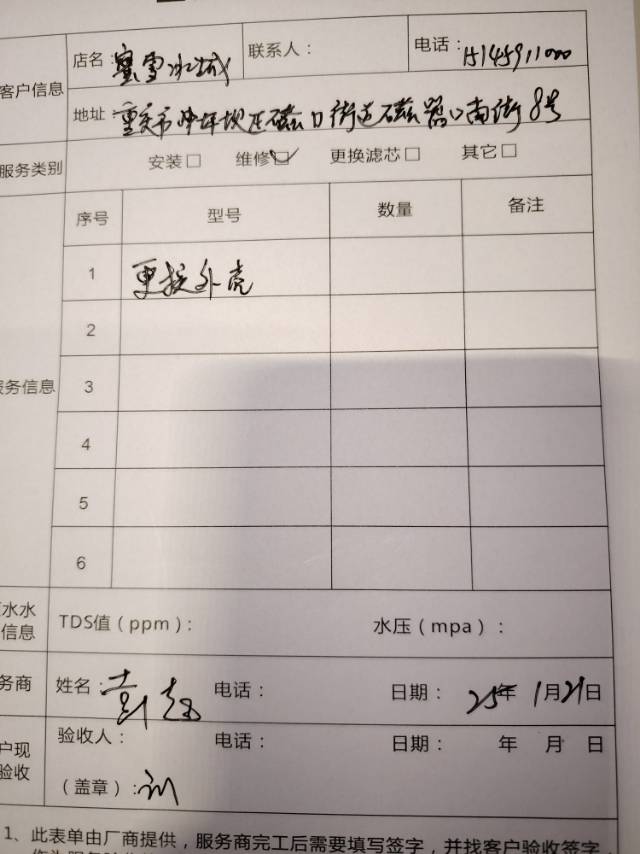 客户信息
店名：蜜雪冰城 联系人： 电话：15145911000
地址：重庆市沙坪坝区磁口街道磁器口南街8号
服务类别 安装□ 维修☑ 更换滤芯□ 其它□
服务信息
序号 型号 数量 备注
1 更换外壳
2
3
4
5
6
水水
信息
TDS值（ppm）： 水压（mpa）：
务商 姓名： 电话： 日期： 25年1月21日
户现
验收
验收人： 电话： 日期： 年 月 日
（盖章）：
1、此表单由厂商提供，服务商完工后需要填写签字，并找客户验收签字，